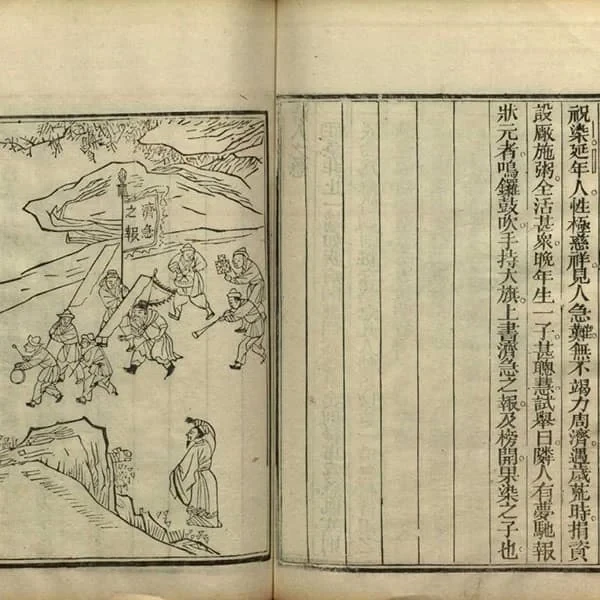 祝染延年人性極慈祥見人急難無不竭力周濟遇歲荒時捐資
設厰施粥全活甚衆晚年生一子甚聰慧試舉日隣人有夢馳報
狀元者鳴鑼鼓吹手持大旗上書濟急之報及榜開果染之子也
濟急
之報